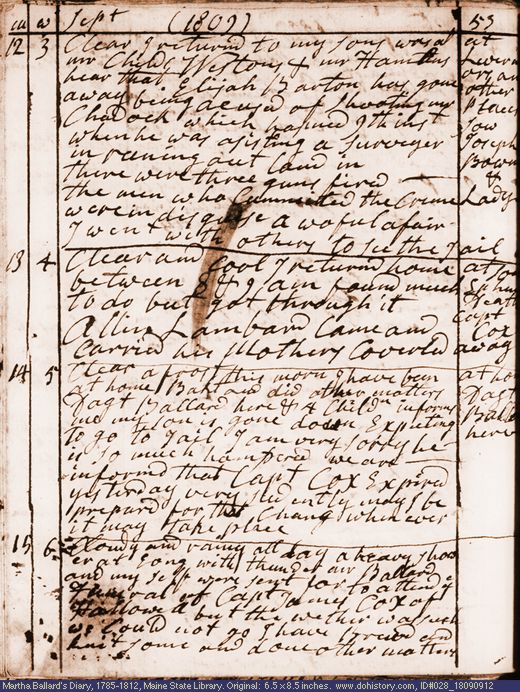 m w Sept (1809) 53
12 3 Clear I returned to my sons
mr Childs Westons & mr Hamlins at Several
hear that Elijah Barton has gone
away being accused of Shooting mr other places
Chadock which hapned 9th inst Saw
when he was asisting a Surveyer Joseph
in runing out land in
there were three guns fired &
the men who Committed the Crime Lady
were in disguise a woful afair
I went with others to see the Jail
13 4 Clear and Cool I returned home at
between 8 & 9 I am found much
to do but got through it
Allin Lambard Came and Capt Cox
carried his Mothers Coverd away
14 5 Clear a frost this morn I have been at home
at home Bakt and did other matters
Dagt Ballard here & 4 Childn informs Dagt Ballard here
me my son is gone down Expecting
to go to Jail I am very sorry he
is so much hampered we are
informd that Capt Cox Expired
yesterday very sudently may I be
prepard for that Change when ever
it may take place
15 6 Cloudy and rainy all day a heavy show
er at Eong with thunder mr Ballard
and my self were sent for to attend ye
Funeral of Capt James Cox of
Hallowell but the wether was such
we Could not go I have and
knit some and done other matters
Martha Ballard's Diary, 1785-1812, Maine State Library. Original: 6.5 x 8.5 inches. - www.dohistory.com, ID#028_18090912